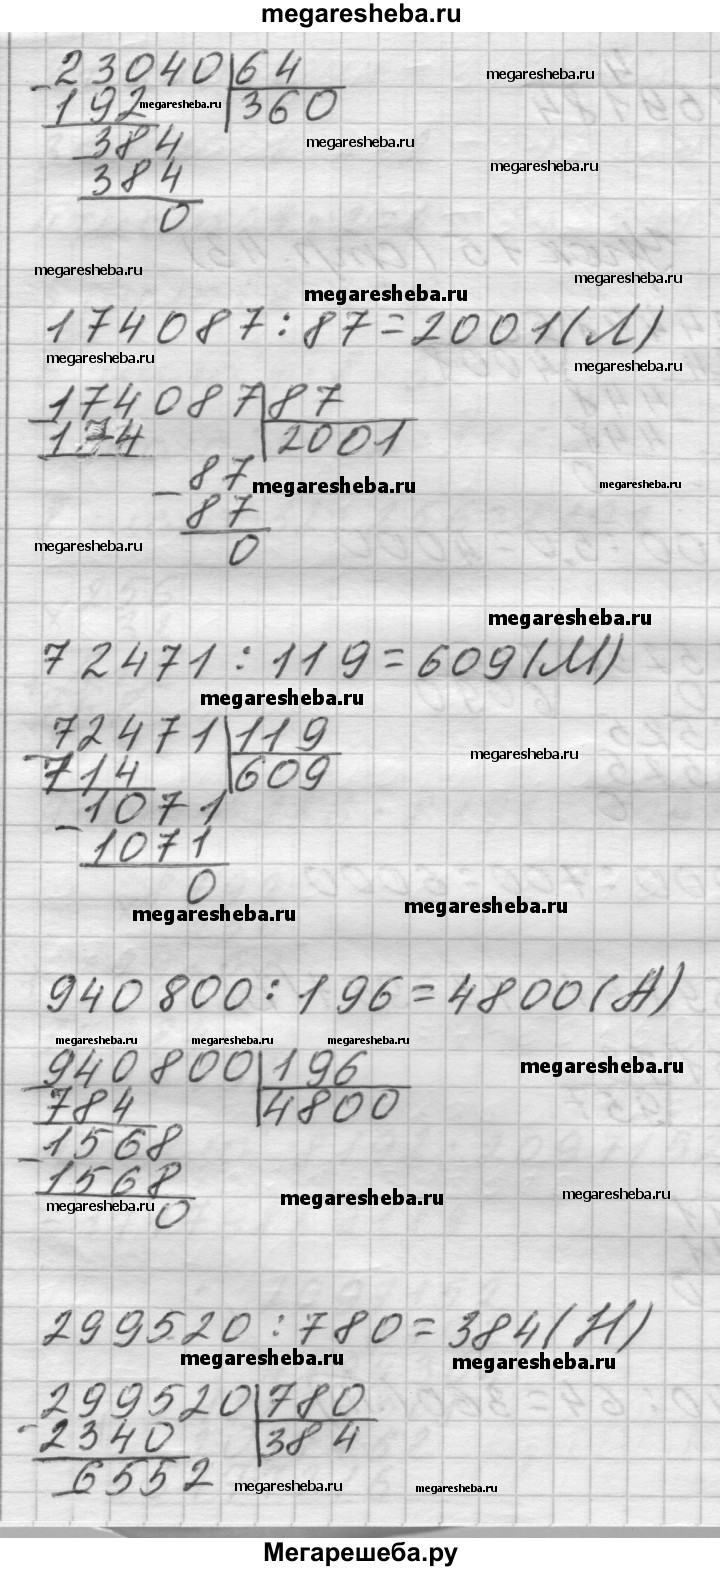 megaresheba.ru
23040 64
megaresheba.ru
192 megaresheba.ru 360
megaresheba.ru
384
megaresheba.ru
384
0
megaresheba.ru
megaresheba.ru
megaresheba.ru
174087:87=2001(Л)
megaresheba.ru
megaresheba.ru
174087 87
174 2001
87 megaresheba.ru megaresheba.ru
87
0
megaresheba.ru
megaresheba.ru
72471:119=609(М)
megaresheba.ru
72471 119
megaresheba.ru
714 609
1071
1071
0
megaresheba.ru megaresheba.ru
940800:196=4800(А)
megaresheba.ru megaresheba.ru megaresheba.ru
940800 196
megaresheba.ru
784 4800
1568
1568
megaresheba.ru megaresheba.ru megaresheba.ru
0
299520:780=384(Н)
megaresheba.ru megaresheba.ru
299520 780
2340 384
6552 megaresheba.ru megaresheba.ru
Мегарешеба.ру